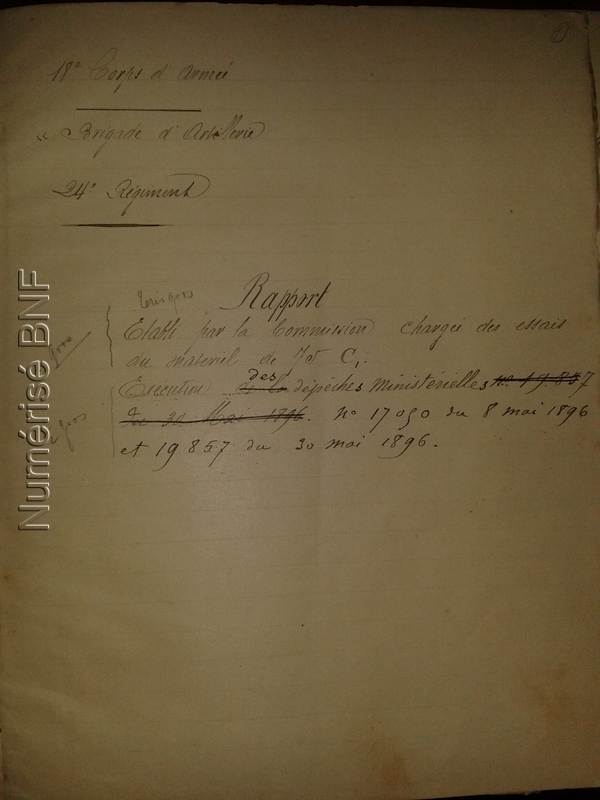 18e Corps d'Armée
Brigade d'Artillerie
24e Régiment
Rapport
Etabli par la Commission chargée des essais
du matériel de 75 C1.
Execution de la des dépêches Ministérielles no 19.857
du 30 Mai 1896. no 17050 du 8 mai 1896
et 19857 du 30 mai 1896.
Numérisé BNF